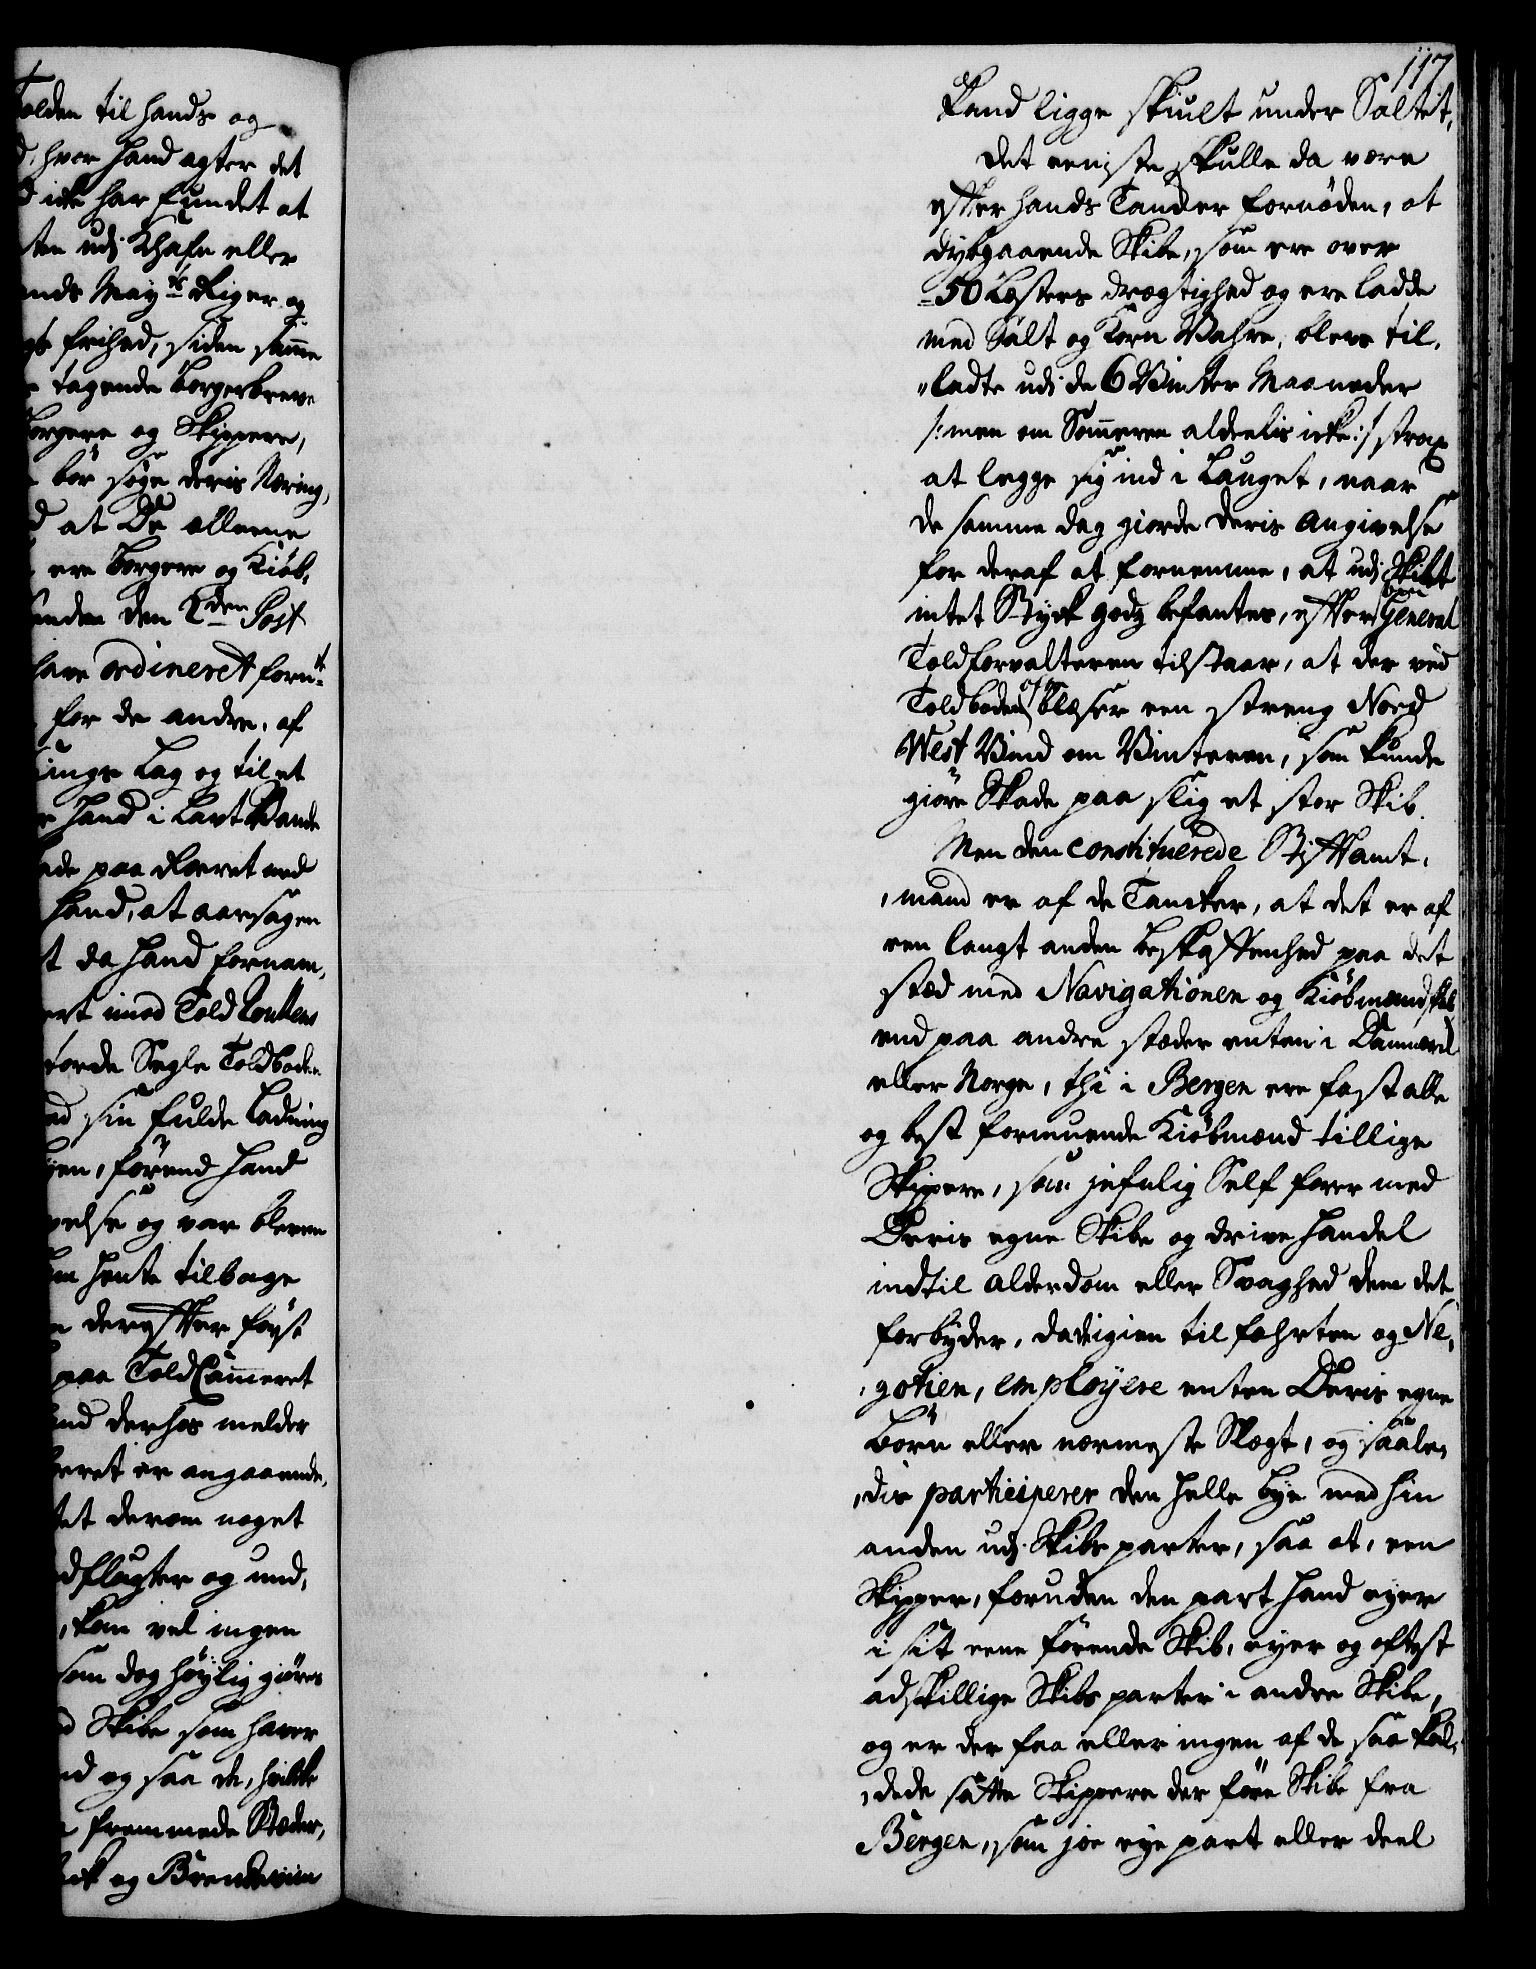 Tolden til hands og
hvor hand agter det
icke har fundet at
ten udj Khafn eller
ands May.ts Riger og
frihed, siden samme
tagende borgerbreve
borgere og Skippere,
bör söge deris Næring,
at De alleene
ere borgere og Kiöb,
anden den 2den Post
have ordineret foru
for de andre, af
Lag og til et
hand i Lart Vande
paa Roret ved
hand, at aarsagen
da hand fornam,
imod Told
torde Segle Toldboden
sin fulde Ladning
förend hand
og var bleven
hente tilbage
derefter først
paa ToldCammeret
derhos melder
er angaaende,
det derom noget
og und,
kan vel ingen
som dog höylig giöres
Skibe som haver
og saa de, hvilke
fremmede Stæder,
og Brendeviin
117
kand ligge skiult under Saltet,
Det eeniste skulle da være
efter hands Tancker fornöden, at
dybgaaende Skibe, som ere over
50 Læsters drægtighed og ere ladde
med Salt og Korn Vahre, bleve til,
ladte udi de 6 Vinter Maaneder
/: men om Sommeren aldeelis icke :/ strax
at legge sig ind i Lauget, naar
de samme dag giorde deris Angivelse
for deraf at fornemme, at udj Skibet
intet Styck godz befantes, efter General
Toldforvalteren tilstaar, at der ved
Toldboden ofte blæser een streng Nord
West Vind om Vinteren, som kunde
giöre Skade paa slig et stor Skib.
Men den constituerede Stiftamt,
mand er af de Tancker, at det er af
een langt anden beskaffenhed paa det
stæd med Navigationen og Kiöbmandskab
end paa andre stæder enten i Danmarck
eller Norge, thi i Bergen ere fast alle
og best formuende Kiöbmænd tillige
Skippere, som jefnlig Self farer med
Deris egne Skibe og drive Handel
indtil Alderdom eller Svaghed dem det
forbyder, da de igien til fahrten og Ne,
gotien, employere enten Deris egne
börn eller nærmeste Slægt, og saale,
dis participerer den heele bye med hin
anden udj Skibs parter, saa at, een
Skipper, foruden den part hand eyer
i sit eene förende Skib, eyer og oftest
adskillige Skibs parter i andre Skibe,
og er der faa eller ingen af de saa kal,
dede satte Skippere der före Skibe fra
Bergen, som joe eye part eller deel